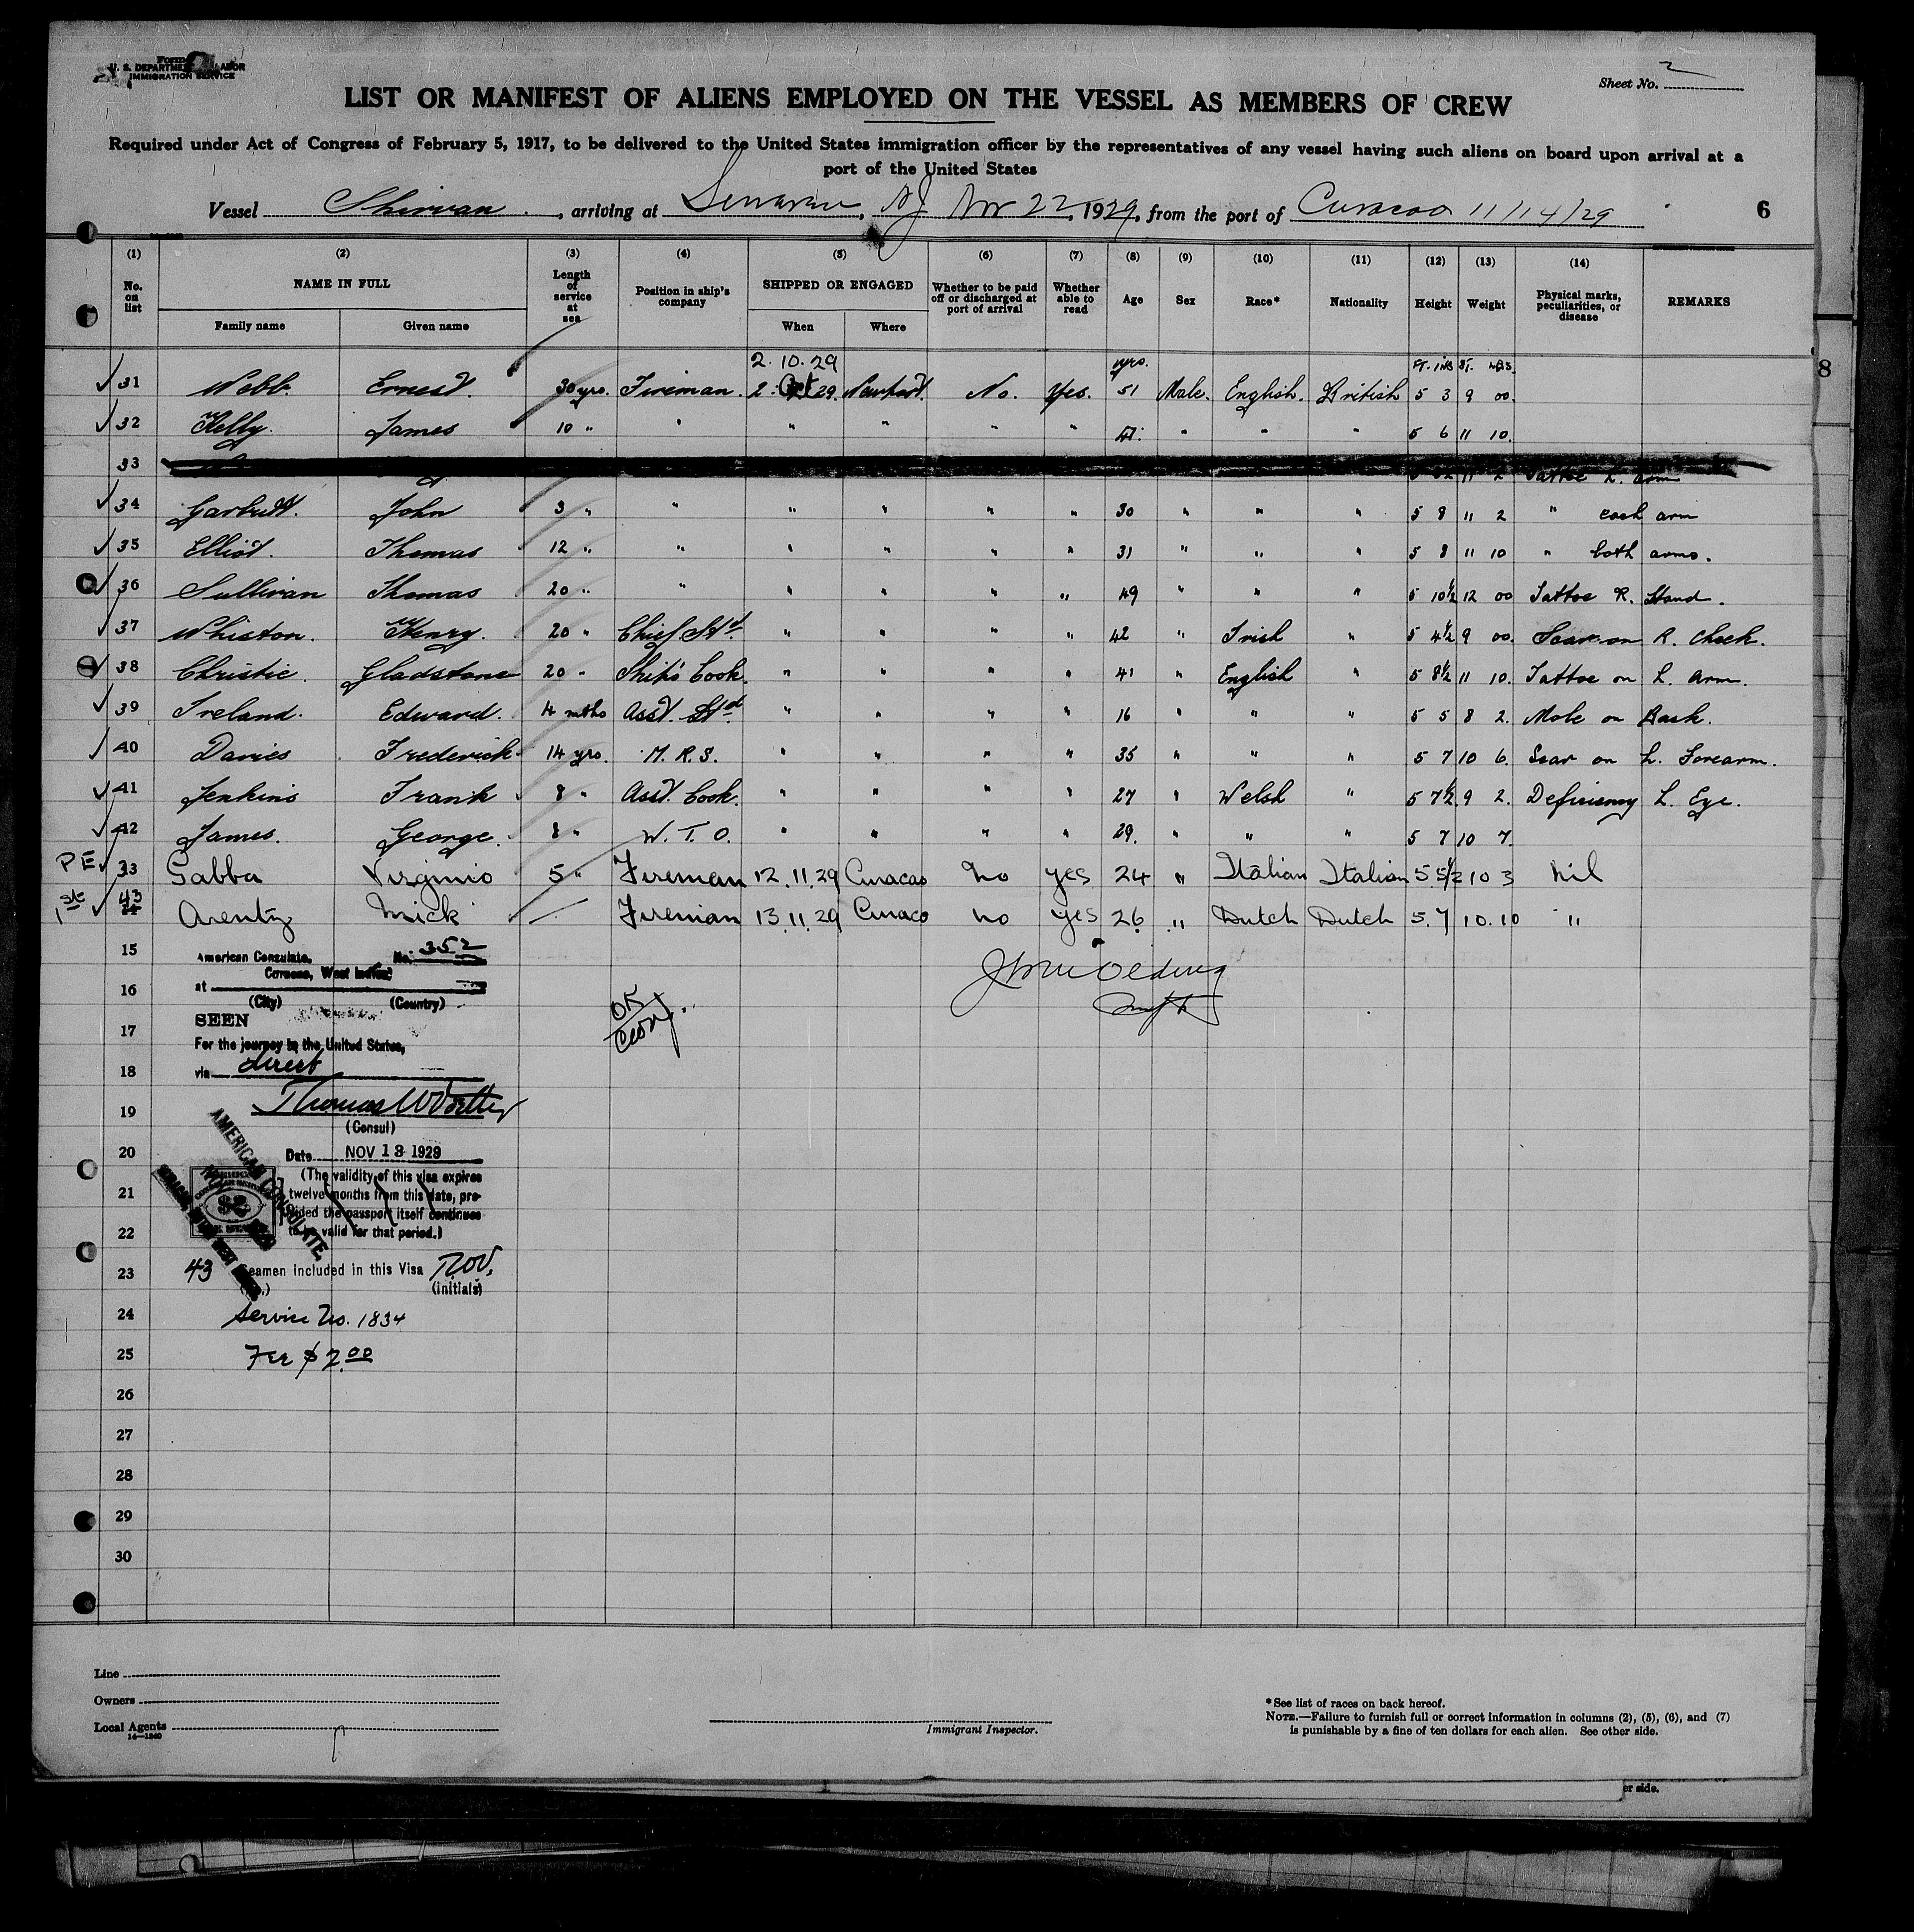 Form
U. S. DEPARTMENT LABOR
IMMIGRATION SERVICE
Sheet No. 2
LIST OR MANIFEST OF ALIENS EMPLOYED ON THE VESSEL AS MEMBERS OF CREW
Required under Act of Congress of February 5, 1917, to be delivered to the United States immigration officer by the representatives of any vessel having such aliens on board upon arrival at a
port of the United States
Vessel Shirvan, arriving at NJ Nov 22, 1929, from the port of Curacao 11/14/29
6
(1) (2) (3) (4) (5) (6) (7) (8) (9) (10) (11) (12) (13) (14)
No. on list NAME IN FULL Length of service at sea Position in ship's company SHIPPED OR ENGAGED Whether to be paid off or discharged at port of arrival Whether able to read Age Sex Race* Nationality Height Weight Physical marks, peculiarities, or disease REMARKS
Family name Given name When Where
2. 10. 29 yrs. FT. INS ST. LBS.
31 Webb. Ernest. 30 yrs. Fireman. 2. Oct 29. Newport. No. Yes. 51 Male. English. British 5 3 9 00.
32 Kelly. James 10 " " " " " " 41. " " " 5 6 11 10.
33 11 2 Tattoe L. arm
34 Garbutt. John 3 " " " " " " 30 " " " 5 8 11 2 " each arm
35 Elliot. Thomas 12 " " " " " " 31 " " " 5 8 11 10 " both arms.
36 Sullivan Thomas 20 " " " " " " 49 " " " 5 10½ 12 00 Tattoe R. Hand.
37 Whiston. Henry. 20 " Chief Std. " " " " 42 " Irish " 5 4½ 9 00. Scar on R. Cheek.
38 Christie. Gladstone 20 " Ship's Cook. " " " " 41 " English " 5 8½ 11 10. Tattoe on L. Arm.
39 Ireland. Edward. 4 mths Asst. Std. " " " " 16 " " " 5 5 8 2. Mole on Back.
40 Davies Frederick 14 yrs. M. R. S. " " " " 35 " " " 5 7 10 6. Scar on L. Forearm.
41 Jenkins Frank 8 " Asst. Cook. " " " " 27 " Welsh " 5 7½ 9 2. Deficiency L. Eye.
42 James. George. 8 " W. T. O. " " " " 29. " " " 5 7 10 7.
PE 33 Gabba Virginio 5 " Fireman 12.11.29 Curacao No yes 24 " Italian Italian 5 5½ 10 3 Nil
1st 43 Arentz Nick Fireman 13.11.29 Curaco no yes 26 " Dutch Dutch 5.7 10.10 "
15 American Consulate, No. 352
Curacao, West Indies
16 at
(City) (Country)
SEEN
17 For the journey to the United States,
OK
18 via direct
19
(Consul)
20 Date NOV 13 1929
(The validity of this visa expires
21 twelve months from this date, provided the passport itself continues
22 to be valid for that period.)
AMERICAN CONSULATE
$2
23 43 Seamen included in this Visa
(initials)
24 Service No. 1834
25 Fee $ 2.00
26
27
28
29
30
Line
Owners
Local Agents
14—1240
Immigrant Inspector.
*See list of races on back hereof.
NOTE.—Failure to furnish full or correct information in columns (2), (5), (6), and (7)
is punishable by a fine of ten dollars for each alien. See other side.
er side.
8